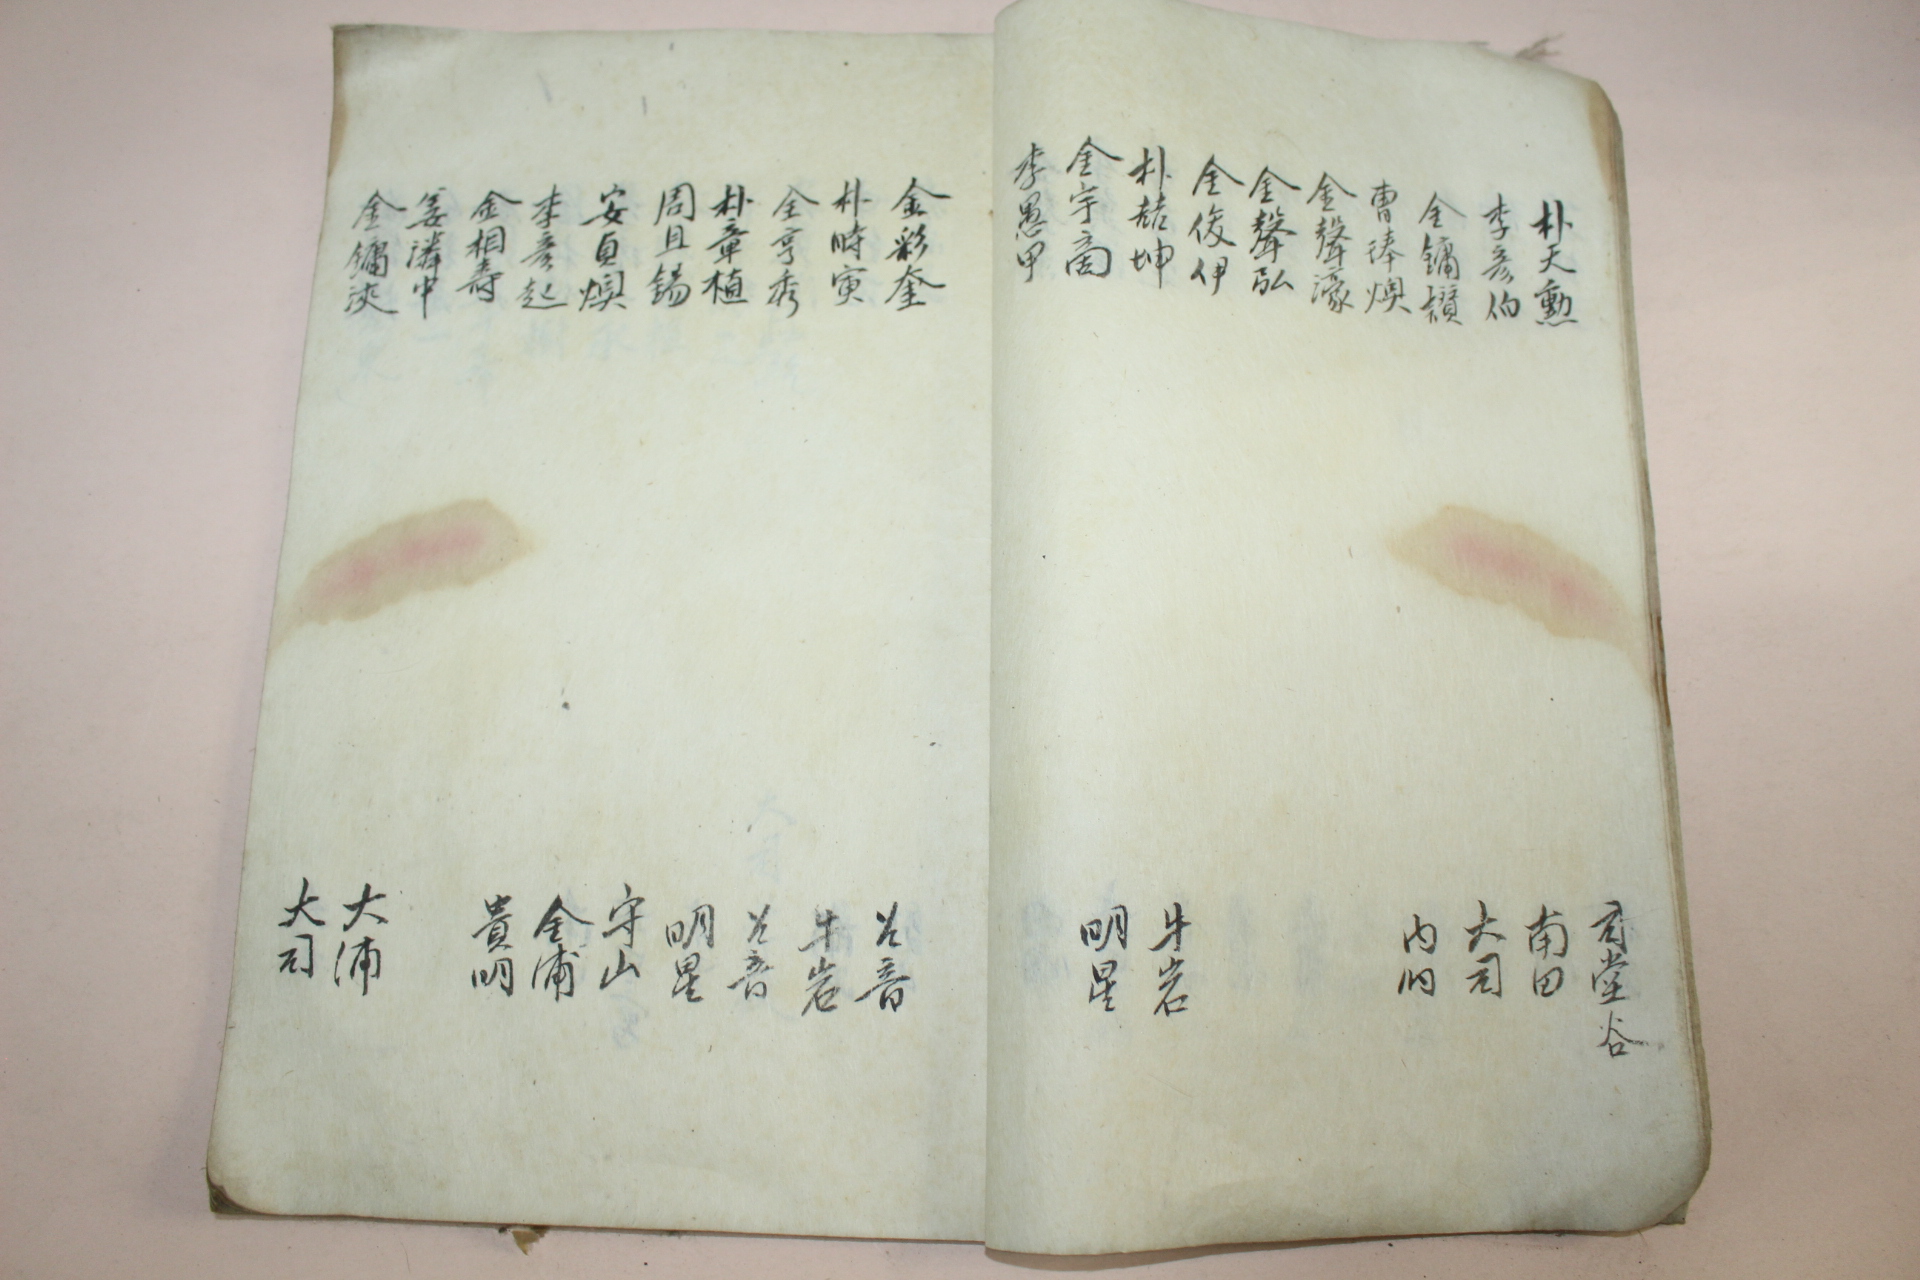 朴天勳
李彦伯
金鏞鑽
曺捧煥
金聲濠
金聲弘
金俊伊
朴喆坤
金宇商
李愚甲
司堂谷
南田
大司
内洞
牛岩
明星
金彩奎
朴時寅
全亨秀
朴章植
周且錫
安貞煥
李彦起
金相壽
姜濟中
金鏞浹
谷音
牛岩
谷音
明星
守山
金浦
貴明
大浦
大司